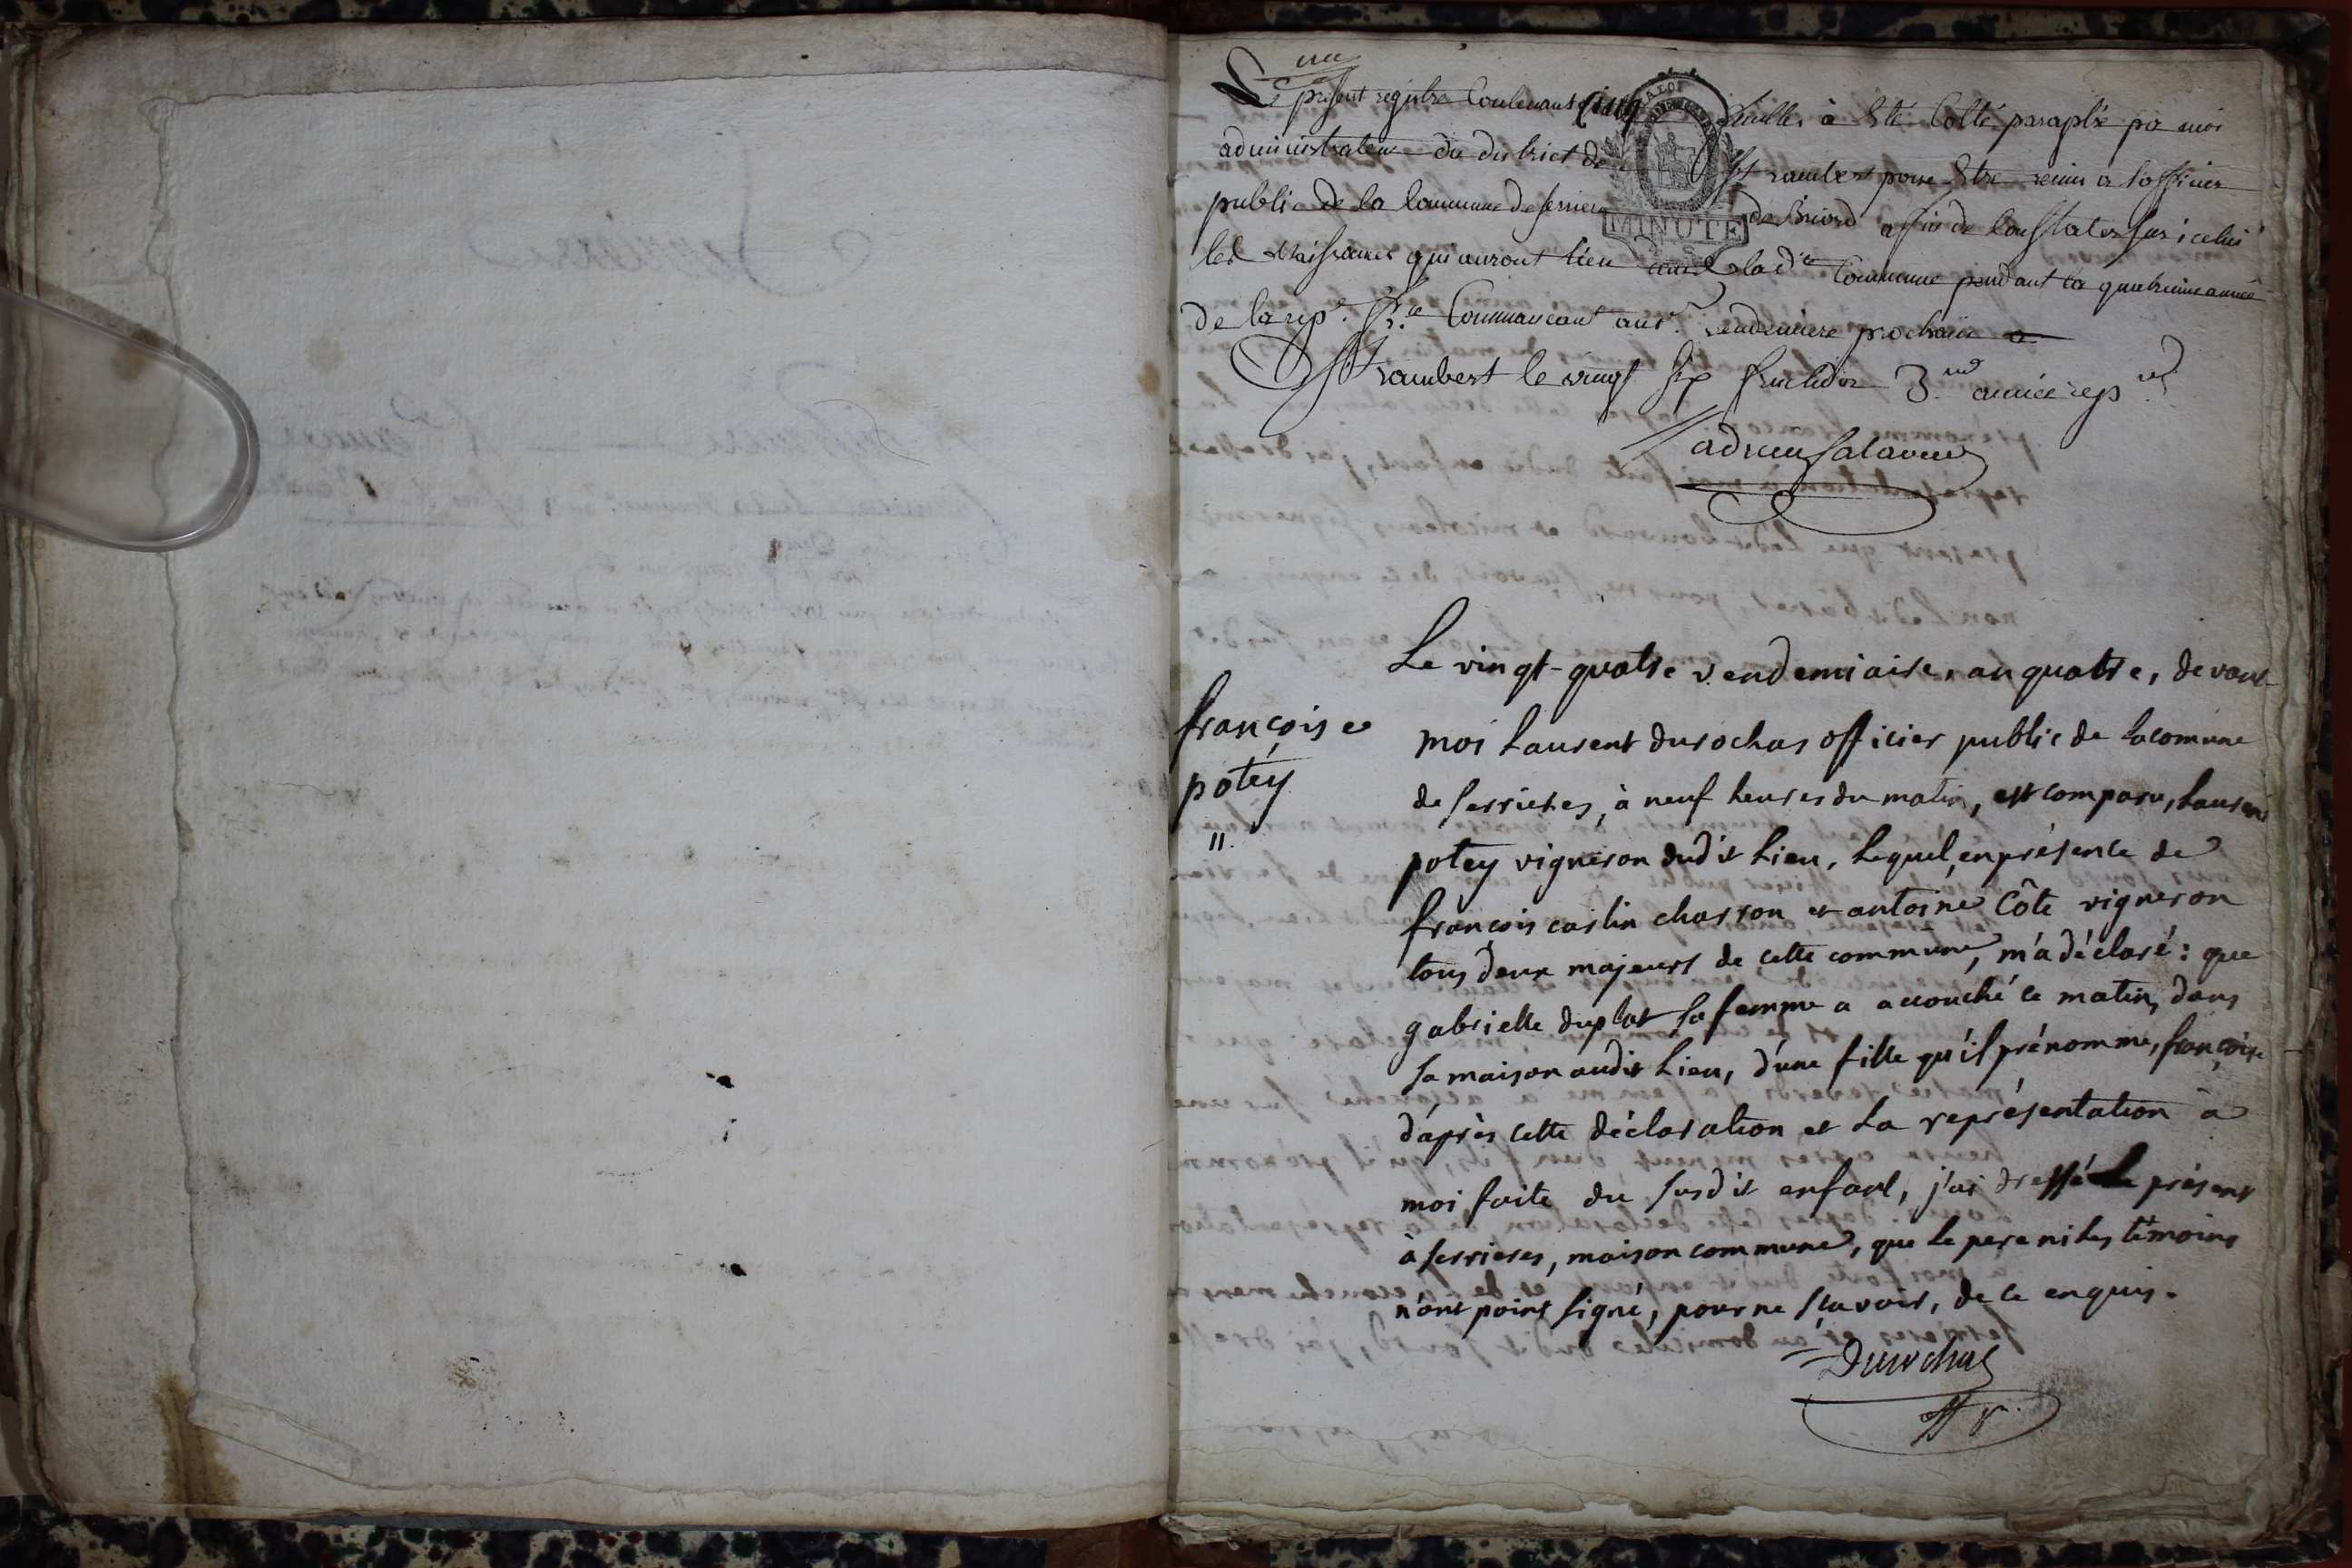 une
Le présent registre Contenant Cinq feuilles à Eté Cotté paraphé par moi
administrateur du district de St rambert pour Etre remis a l'officier
public de la Commune de Serriere de Briord afin de Constater sur icelui
les Naissances qui auront lieu dans lad.te Commune pendant la quatrieme année
de la rep.e fr.se Commancant au 1.er vendemiere prochain a
St rambert le vingt six fructidor 3.me année rep.ne
LA LOI
MINUTE
françoise
potéy
11.
Le vingt-quatre vendemiaire, an quatre, devant
moi Laurent durochas officier public de la comune
de serrieres, à neuf heures du matin, est comparu, Laurent
potey vigneron dudit Lieu, Lequel, en présence de
françois carlin charron et antoine Côte vigneron
tous deux majeurs de cette commune, m'a déclaré : que
gabrielle duplat sa femme a accouché ce matin, dans
sa maison audit Lieu, d'une fille qu'il prénomme, françoise
d'après cette déclaration et La représentation à
moi faite du susdit enfant, j'ai dressé Le présent
à serrieres, maison commune, que le pere ni les témoins
n'ont point signé, pour ne sçavoir, de ce enquis.
Durochas